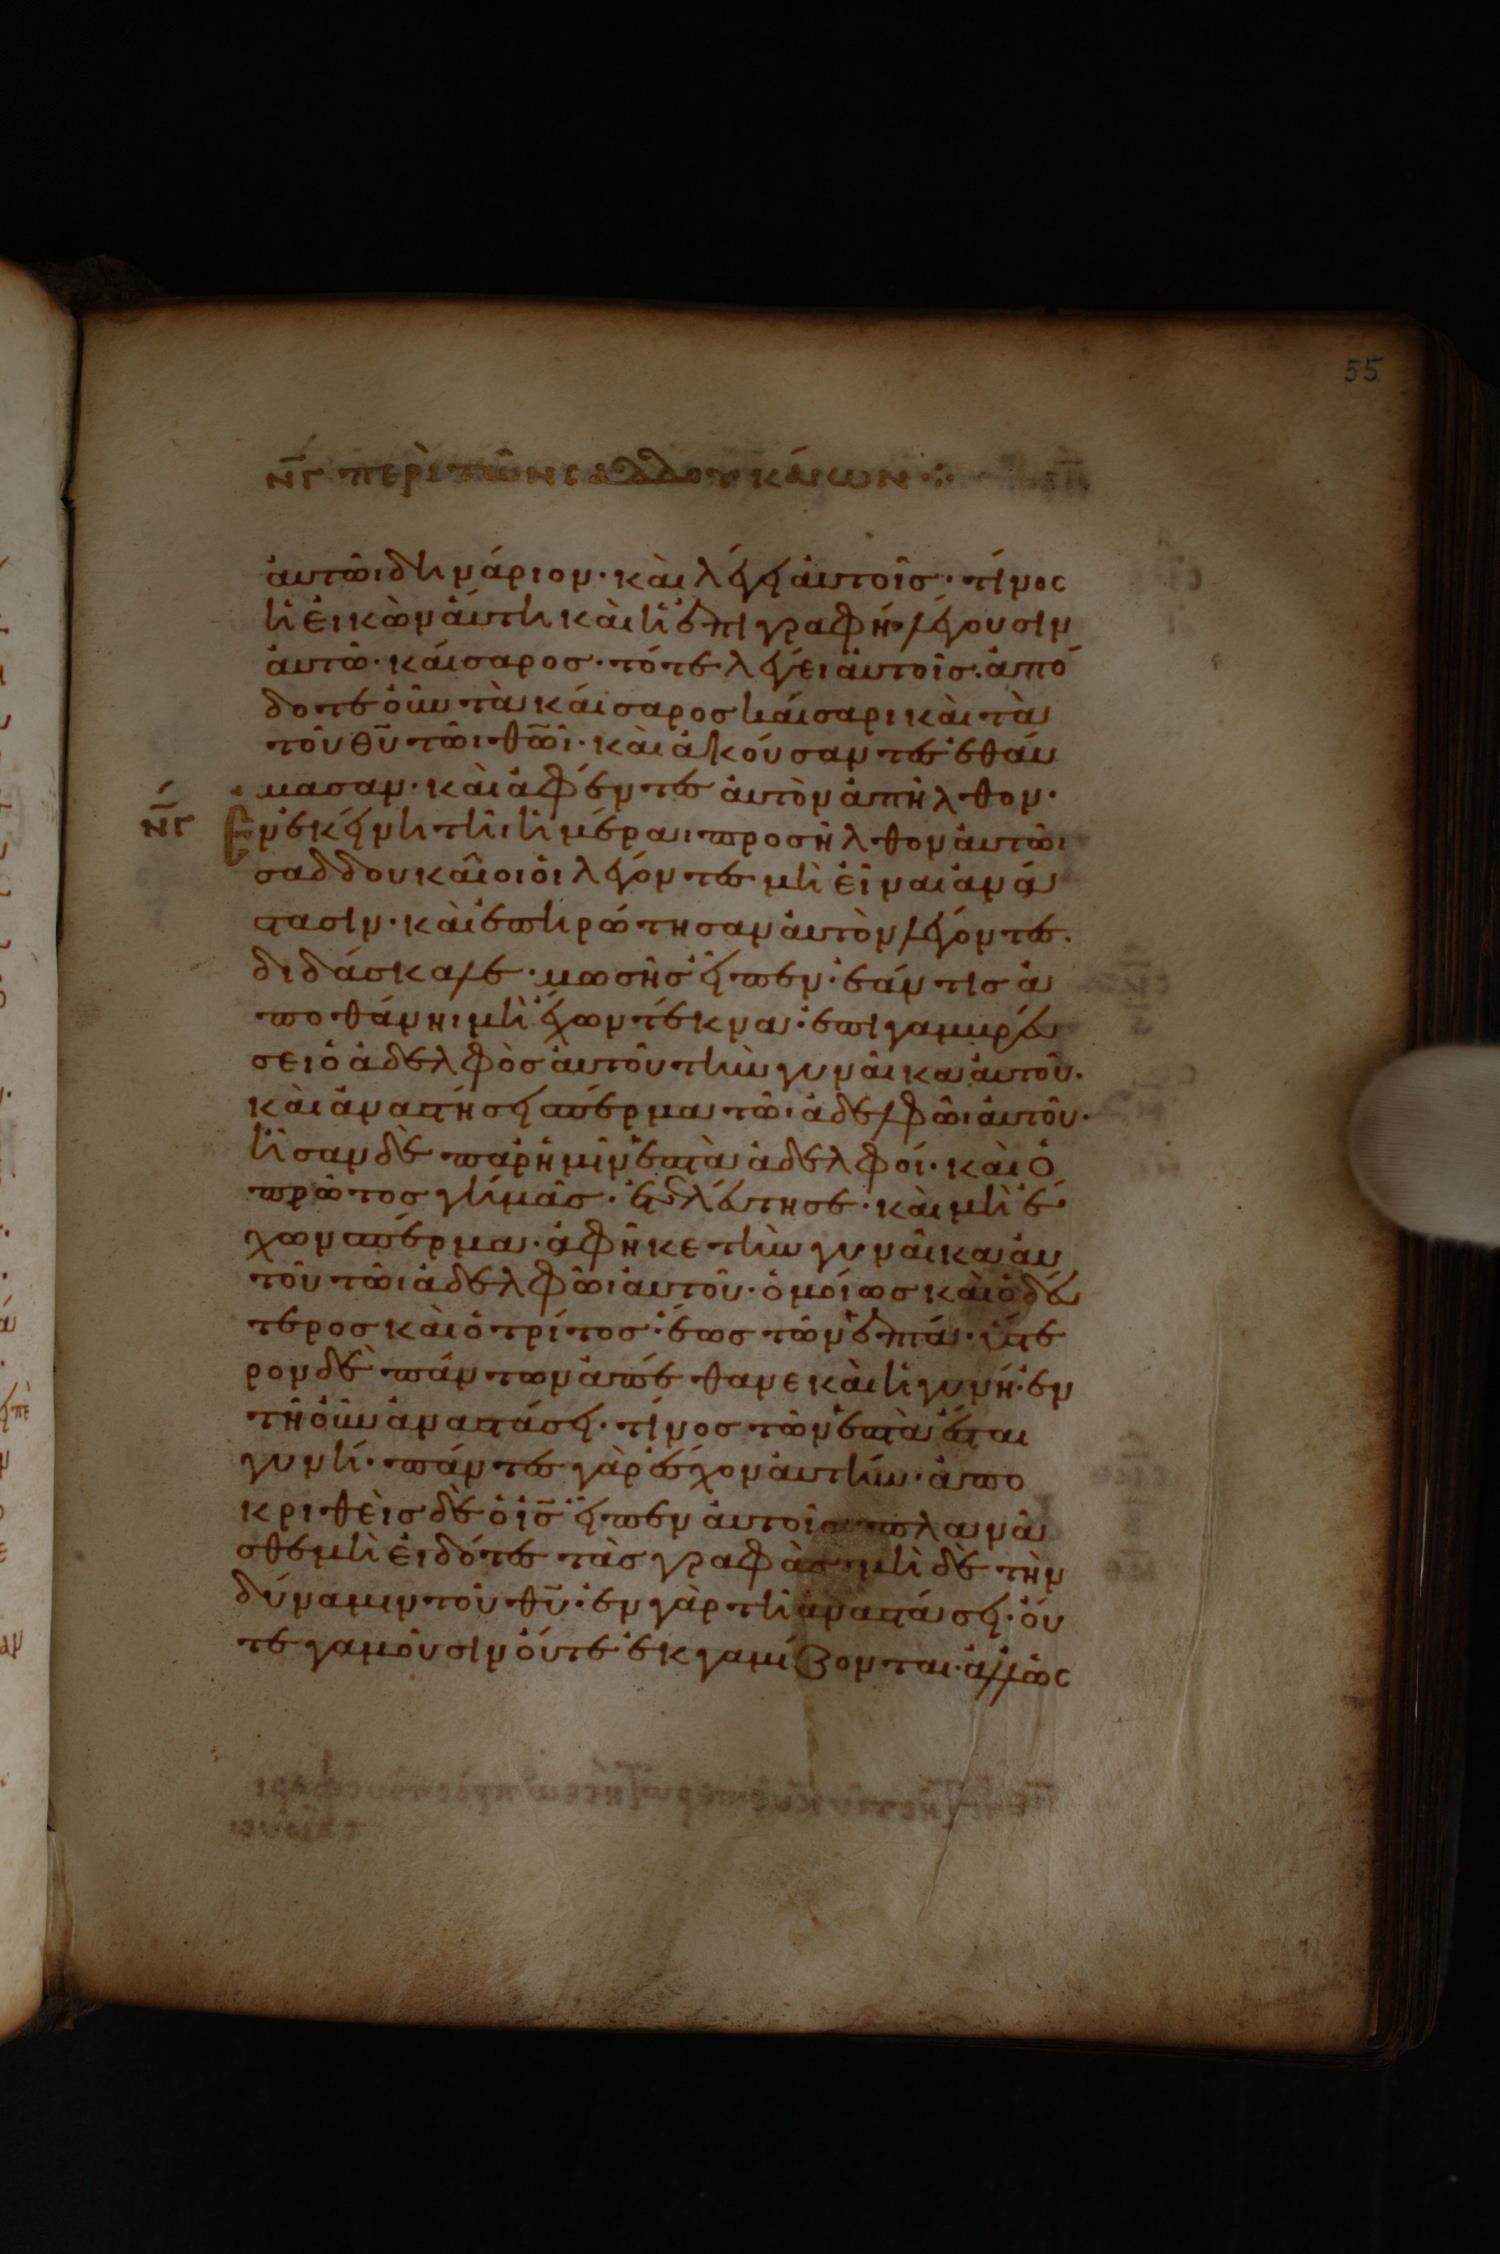 55
ν̅γ περὶ τῶν σαδδουκάιων ⁘
ἀυτῶι δηνάριον · καὶ λέγει ἀυτοῖσ · τίνος
ἡ ἐικὼν ἄυτη καὶ ἡ ἐπιγραφή · λέγουσιν
ἀυτῶ · κάισαροσ · τότε λέγει ἀυτοῖσ · ἀπό
δοτε ὀῦν τὰ κάισαροσ κάισαρι καὶ τὰ
τοῦ θ̅υ̅ τῶι θ̅ῶ̅ι · καὶ ἀκούσαντεσ ἐθάυ
μασαν · καὶ ἀφέντεσ ἀυτὸν ἀπῆλθον ·
ν̅γ
Ἐν ἐκείνη τῆι ἡμέραι προσῆλθον ἀυτῶι
σαδδουκᾶιοι ὁι λέγοντεσ μὴ ἐῖναι ἀνά
στασιν · καὶ ἐπηρώτησαν ἀυτὸν λέγοντεσ ·
διδάσκαλε · μωσῆσ ἐῖπεν · ἐάν τισ ἀ
ποθάνηι μὴ ἔχων τέκνα · ἐπιγαμβρέυ
σει ὁ ἀδελφὸσ ἀυτοῦ τὴν γυνᾶικα ἀυτοῦ ·
καὶ ἀναστήσει σπέρμα τῶι ἀδελφῶι ἀυτοῦ ·
ἦσαν δὲ παρ ἡμῖν ἑπτὰ ἀδελφοί · καὶ ὁ
πρῶτοσ γήμασ · ἐτελέυτησε · καὶ μὴ ἔ
χων σπέρμα · ἀφῆκε τὴν γυνᾶικα ἀυ
τοῦ τῶι ἀδελφῶι ἀυτοῦ · ὁμοίωσ καὶ ὁ δέυ
τεροσ καὶ ὁ τρίτοσ · ἕωσ τῶν ἑπτά · ὕστε
ρον δὲ πάντων ἀπέθανε καὶ ἡ γυνή · ἐν
τῆ ὀῦν ἀναστάσει · τίνοσ τῶν ἑπτὰ ἔσται
γυνή · πάντεσ γὰρ ἔσχον ἀυτήν · ἀπο
κριθεὶσ δὲ ὁ ι̅σ̅ ἐῖπεν ἀυτοῖσ πλανᾶ
σθε μὴ ἐιδότεσ τὰσ γραφὰσ μὴ δὲ τὴν
δύναμιν τοῦ θ̅υ̅ · ἐν γὰρ τῆ ἀναστάσει · ὄυ
τε γαμοῦσιν ὄυτε ἐκγαμίζονται · ἀλλ ὡς